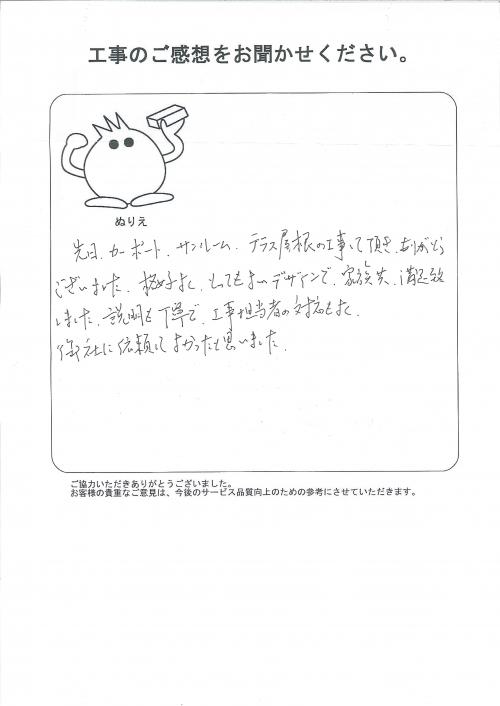 工事のご感想をお聞かせください。
ぬりえ
先日、カーポート、サンルーム、テラス屋根の工事して頂き、ありがとう
ございました。格好よく、とってもよいデザインで、家族共、満足致
しました。説明も丁寧で、工事担当者の対応もよく、
御社に依頼してよかったと思いました。
ご協力いただきありがとうございました。
お客様の貴重なご意見は、今後のサービス品質向上のための参考にさせていただきます。